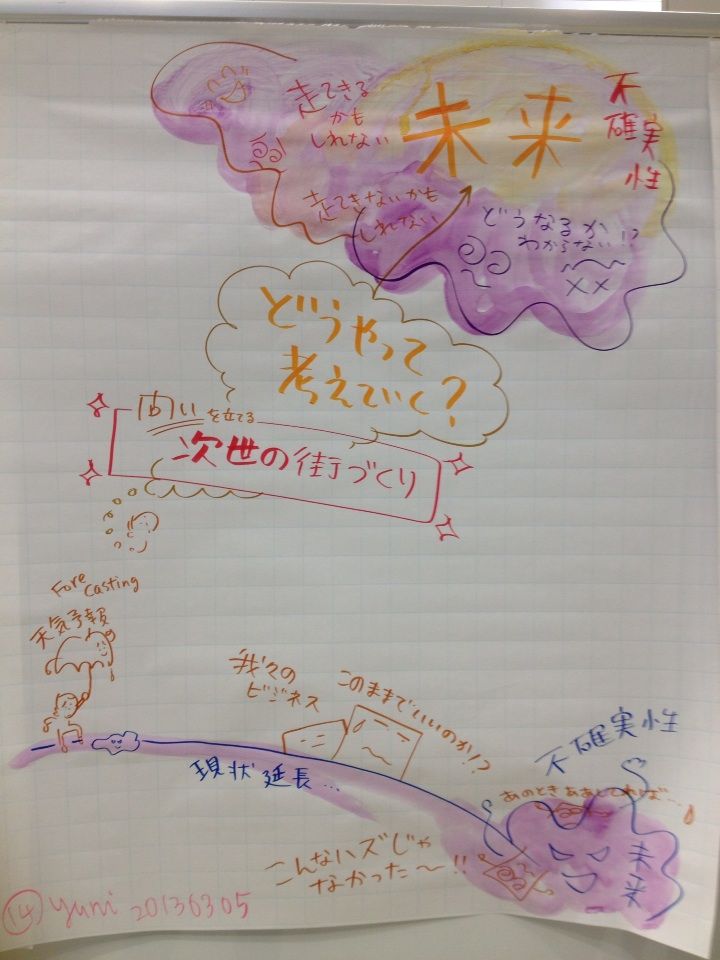 走できる
かも
しれない
未来
不確実性
走できないかも
しれない
どうなるか
わからない!?
どうやって
考えていく?
問いを立てる
次世の街づくり
Fore
casting
天気予報
我々の
ビジネス
このままでいいのか!?
現状延長...
不確実性
あのときああしてれば...
未来
こんなハズじゃ
なかった〜!!
14 yuni 20130305